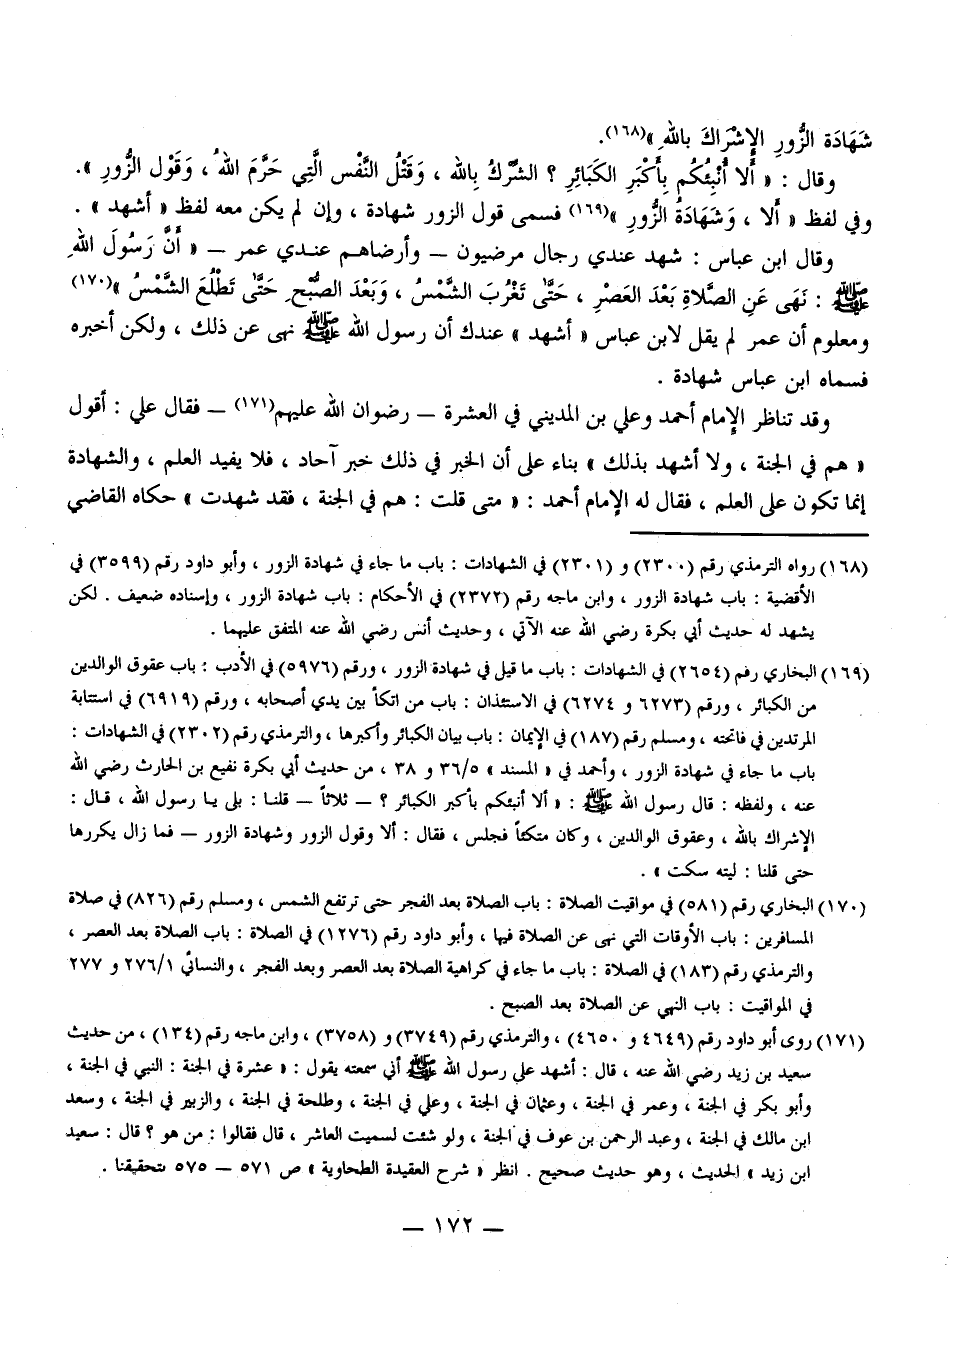 شَهَادَة الزُّورِ الإشْرَاكَ بالله»(١٦٨).
وقال : « أَلا أُنْبِئُكُم بِأَكْبَرِ الكَبَائِرِ ؟ الشِّرْكُ بِالله ، وَقَتْلُ النَّفْس الَّتِي حَرَّمَ اللهُ ، وَقَوْل الزُّورِ ».
وفي لفظ « أَلا ، وَشَهَادَةُ الزُّورِ »(١٦٩) فسمى قول الزور شهادة ، وإن لم يكن معه لفظ « أشهد » .
وقال ابن عباس : شهد عندي رجال مرضيون – وأرضاهم عندي عمر – « أَنَّ رَسُولَ اللهِ
ﷺ : نَهَى عَنِ الصَّلاةِ بَعْدَ العَصْرِ ، حَتَّى تَغْرُبَ الشَّمْسُ ، وَبَعْدَ الصُّبْحِ حَتَّى تَطْلُعَ الشَّمْسُ »(١٧٠)
ومعلوم أن عمر لم يقل لابن عباس « أشهد » عندك أن رسول الله ﷺ نهى عن ذلك ، ولكن أخبره
فسماه ابن عباس شهادة .
وقد تناظر الإمام أحمد وعلي بن المديني في العشرة – رضوان الله عليهم(١٧١) – فقال علي : أقول
« هم في الجنة ، ولا أشهد بذلك » بناء على أن الخبر في ذلك خبر آحاد ، فلا يفيد العلم ، والشهادة
إنما تكون على العلم ، فقال له الإمام أحمد : « متى قلت : هم في الجنة ، فقد شهدت » حكاه القاضي
(١٦٨) رواه الترمذي رقم (٢٣٠٠) و (٢٣٠١) في الشهادات : باب ما جاء في شهادة الزور ، وأبو داود رقم (٣٥٩٩) في
الأقضية : باب شهادة الزور ، وابن ماجه رقم (٢٣٧٢) في الأحكام : باب شهادة الزور ، وإسناده ضعيف . لكن
يشهد له حديث أبي بكرة رضي الله عنه الآتي ، وحديث أنس رضي الله عنه المتفق عليهما .
(١٦٩) البخاري رقم (٢٦٥٤) في الشهادات : باب ما قيل في شهادة الزور ، ورقم (٥٩٧٦) في الأدب : باب عقوق الوالدين
من الكبائر ، ورقم (٦٢٧٣ و ٦٢٧٤) في الاستئذان : باب من اتكأ بين يدي أصحابه ، ورقم (٦٩١٩) في استتابة
المرتدين في فاتحته ، ومسلم رقم (١٨٧) في الإيمان : باب بيان الكبائر وأكبرها ، والترمذي رقم (٢٣٠٢) في الشهادات :
باب ما جاء في شهادة الزور ، وأحمد في « المسند » ٣٦/٥ و ٣٨ ، من حديث أبي بكرة نفيع بن الحارث رضي الله
عنه ، ولفظه : قال رسول الله ﷺ : « ألا أنبئكم بأكبر الكبائر ؟ – ثلاثاً – قلنا : بلى يا رسول الله ، قال :
الإشراك بالله ، وعقوق الوالدين ، وكان متكئاً فجلس ، فقال : ألا وقول الزور وشهادة الزور – فما زال يكررها
حتى قلنا : ليته سكت » .
(١٧٠) البخاري رقم (٥٨١) في مواقيت الصلاة : باب الصلاة بعد الفجر حتى ترتفع الشمس ، ومسلم رقم (٨٢٦) في صلاة
المسافرين : باب الأوقات التي نهى عن الصلاة فيها ، وأبو داود رقم (١٢٧٦) في الصلاة : باب الصلاة بعد العصر ،
والترمذي رقم (١٨٣) في الصلاة : باب ما جاء في كراهية الصلاة بعد العصر وبعد الفجر ، والنسائي ٢٧٦/١ و ٢٧٧
في المواقيت : باب النهي عن الصلاة بعد الصبح .
(١٧١) روى أبو داود رقم (٤٦٤٩ و ٤٦٥٠) ، والترمذي رقم (٣٧٤٩) و (٣٧٥٨) ، وابن ماجه رقم (١٣٤) ، من حديث
سعيد بن زيد رضي الله عنه ، قال : أشهد على رسول الله ﷺ أني سمعته يقول : « عشرة في الجنة : النبي في الجنة ،
وأبو بكر في الجنة ، وعمر في الجنة ، وعثمان في الجنة ، وعلي في الجنة ، وطلحة في الجنة ، والزبير في الجنة ، وسعد
ابن مالك في الجنة ، وعبد الرحمن بن عوف في الجنة ، ولو شئت لسميت العاشر ، قال فقالوا : من هو ؟ قال : سعيد
ابن زيد » الحديث ، وهو حديث صحيح . انظر « شرح العقيدة الطحاوية » ص ٥٧١ – ٥٧٥ بتحقيقنا .
– ١٧٢ –